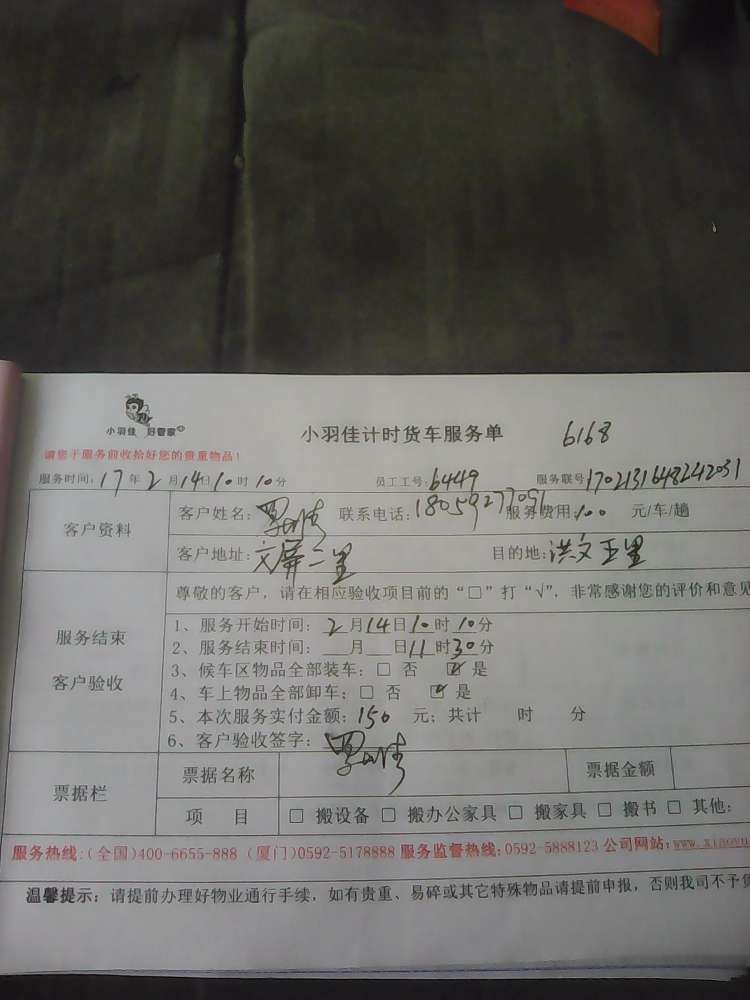 小羽佳 好管家
小羽佳计时货车服务单 6168
请您于服务前收拾好您的贵重物品!
服务时间:17年2月14日10时10分 员工工号:6449 服务联号
客户资料
客户姓名: 联系电话:18059277091 服务费用:100 元/车/趟
客户地址:文屏二里 目的地:洪文五里
服务结束
客户验收
尊敬的客户,请在相应验收项目前的“□”打“√”,非常感谢您的评价和意见
1、服务开始时间:2月14日10时10分
2、服务结束时间:__月__日11时30分
3、候车区物品全部装车:□ 否 ☑ 是
4、车上物品全部卸车:□ 否 ☑ 是
5、本次服务实付金额:150 元;共计 时 分
6、客户验收签字:
票据栏
票据名称 票据金额
项 目 □ 搬设备 □ 搬办公家具 □ 搬家具 □ 搬书 □ 其他:
服务热线:(全国)400-6655-888 (厦门)0592-5178888 服务监督热线:0592-5888123 公司网站:www.xiaoyu
温馨提示:请提前办理好物业通行手续,如有贵重、易碎或其它特殊物品请提前申报,否则我司不予